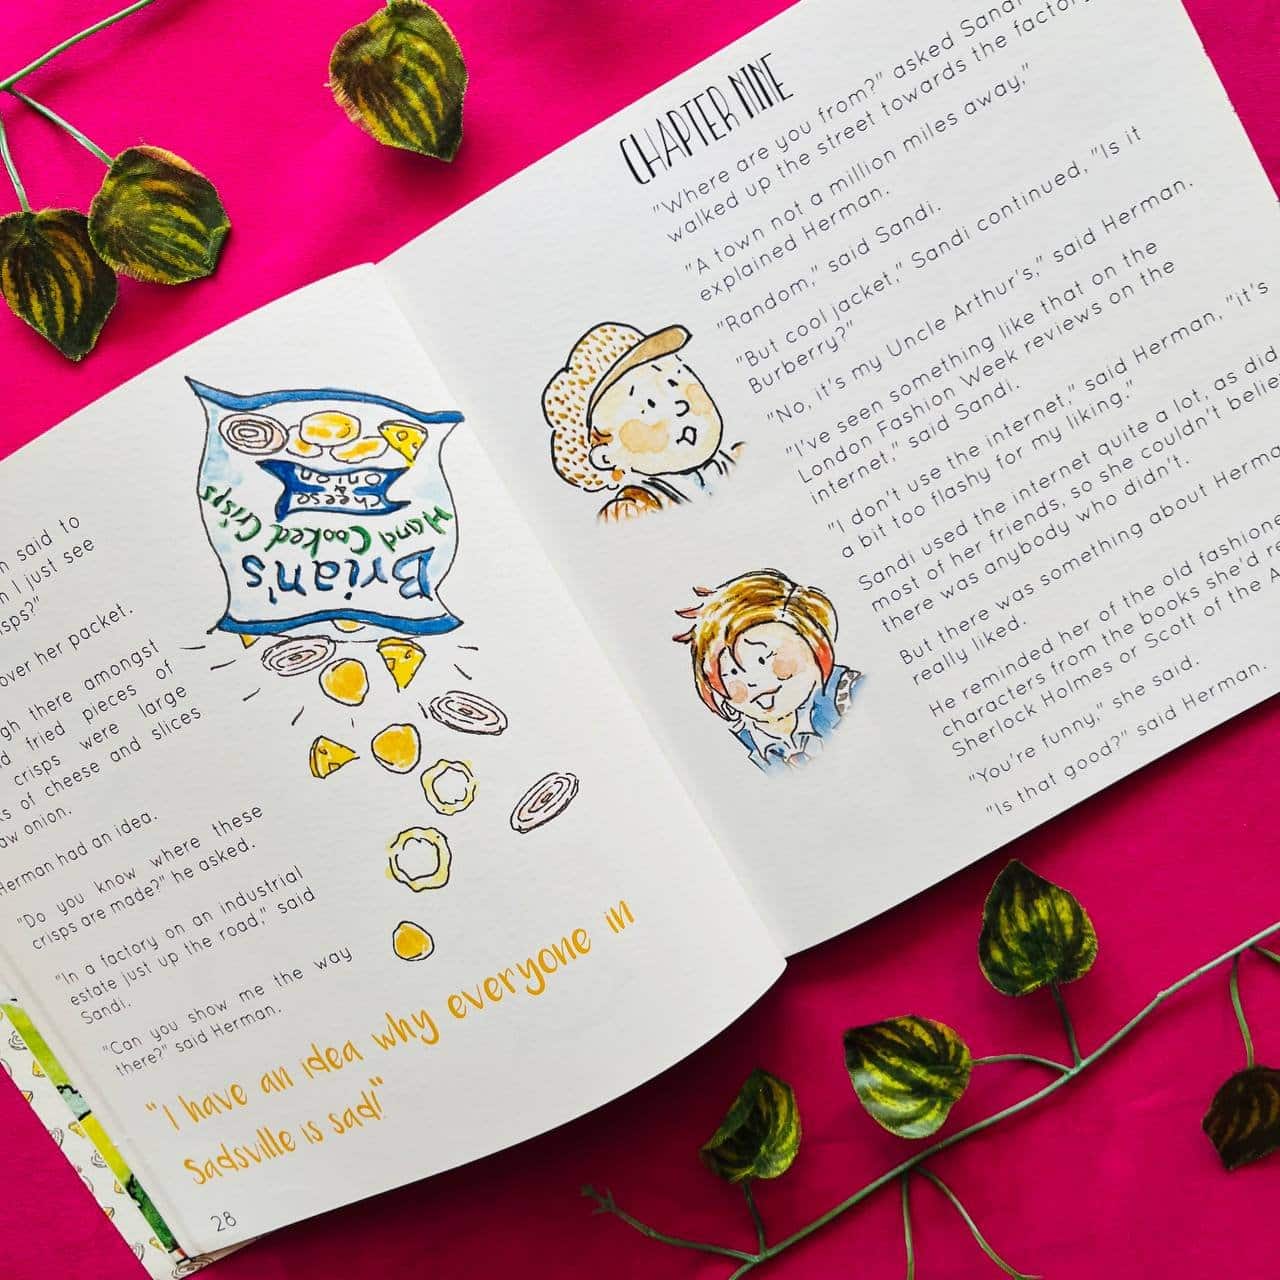 said to
I just see
over her packet.
there amongst
fried pieces of
crisps were large
of cheese and slices
onion.
Herman had an idea.
"Do you know where these
crisps are made?" he asked.
"In a factory on an industrial
estate just up the road," said
Sandi.
"Can you show me the way
there?" said Herman.
"I have an idea why everyone in
Sadsville is sad!"
28
Brian's
Hand Cooked Crisps
Cheese
&
Onion
CHAPTER NINE
"Where are you from?" asked Sandi
walked up the street towards the factory
"A town not a million miles away,"
explained Herman.
"Random," said Sandi.
"But cool jacket," Sandi continued, "Is it
Burberry?"
"No, it's my Uncle Arthur's," said Herman.
"I've seen something like that on the
London Fashion Week reviews on the
internet," said Sandi.
"I don't use the internet," said Herman, "it's
a bit too flashy for my liking."
Sandi used the internet quite a lot, as did
most of her friends, so she couldn't
there was anybody who didn't.
But there was something about
really liked.
He reminded her of the old
characters from the books she'd
Sherlock Holmes or Scott of the
"You're funny," she said.
"Is that good?" said Herman.